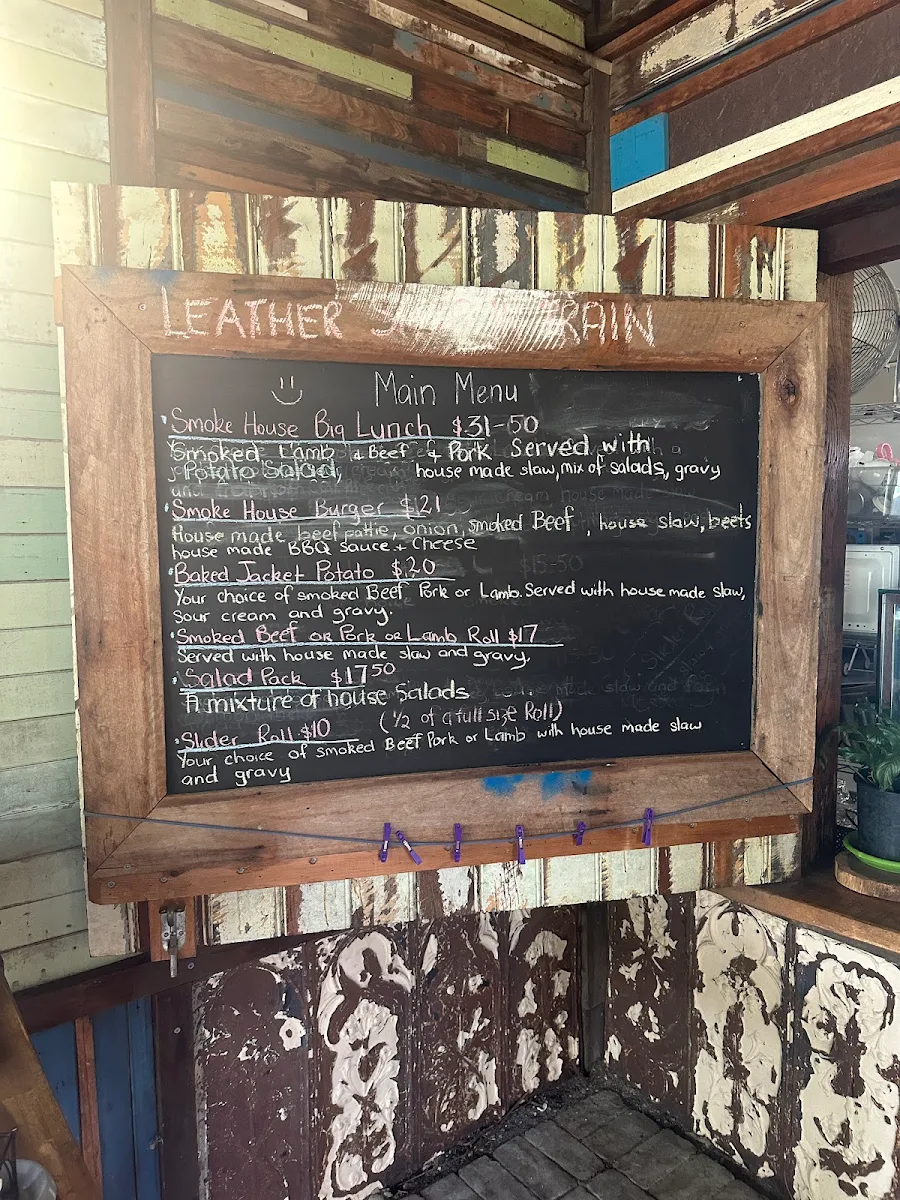 LEATHER RAIN
Main Menu
Smoke House Big Lunch $31-50
Smoked Lamb & Beef & Pork Served with
Potato Salad, house made slaw, mix of salads, gravy
Smoke House Burger $21
House made beef pattie, onion, smoked Beef, house slaw, beets
house made BBQ sauce + Cheese
Baked Jacket Potato $20
Your choice of smoked Beef Pork or Lamb. Served with house made slaw,
Sour cream and gravy.
Smoked Beef or Pork or Lamb Roll $17
Served with house made slaw and gravy.
Salad Pack $17 50
A mixture of house Salads
Slider Roll $10 (1/2 of a full size Roll)
Your choice of smoked Beef Pork or Lamb with house made slaw
and gravy